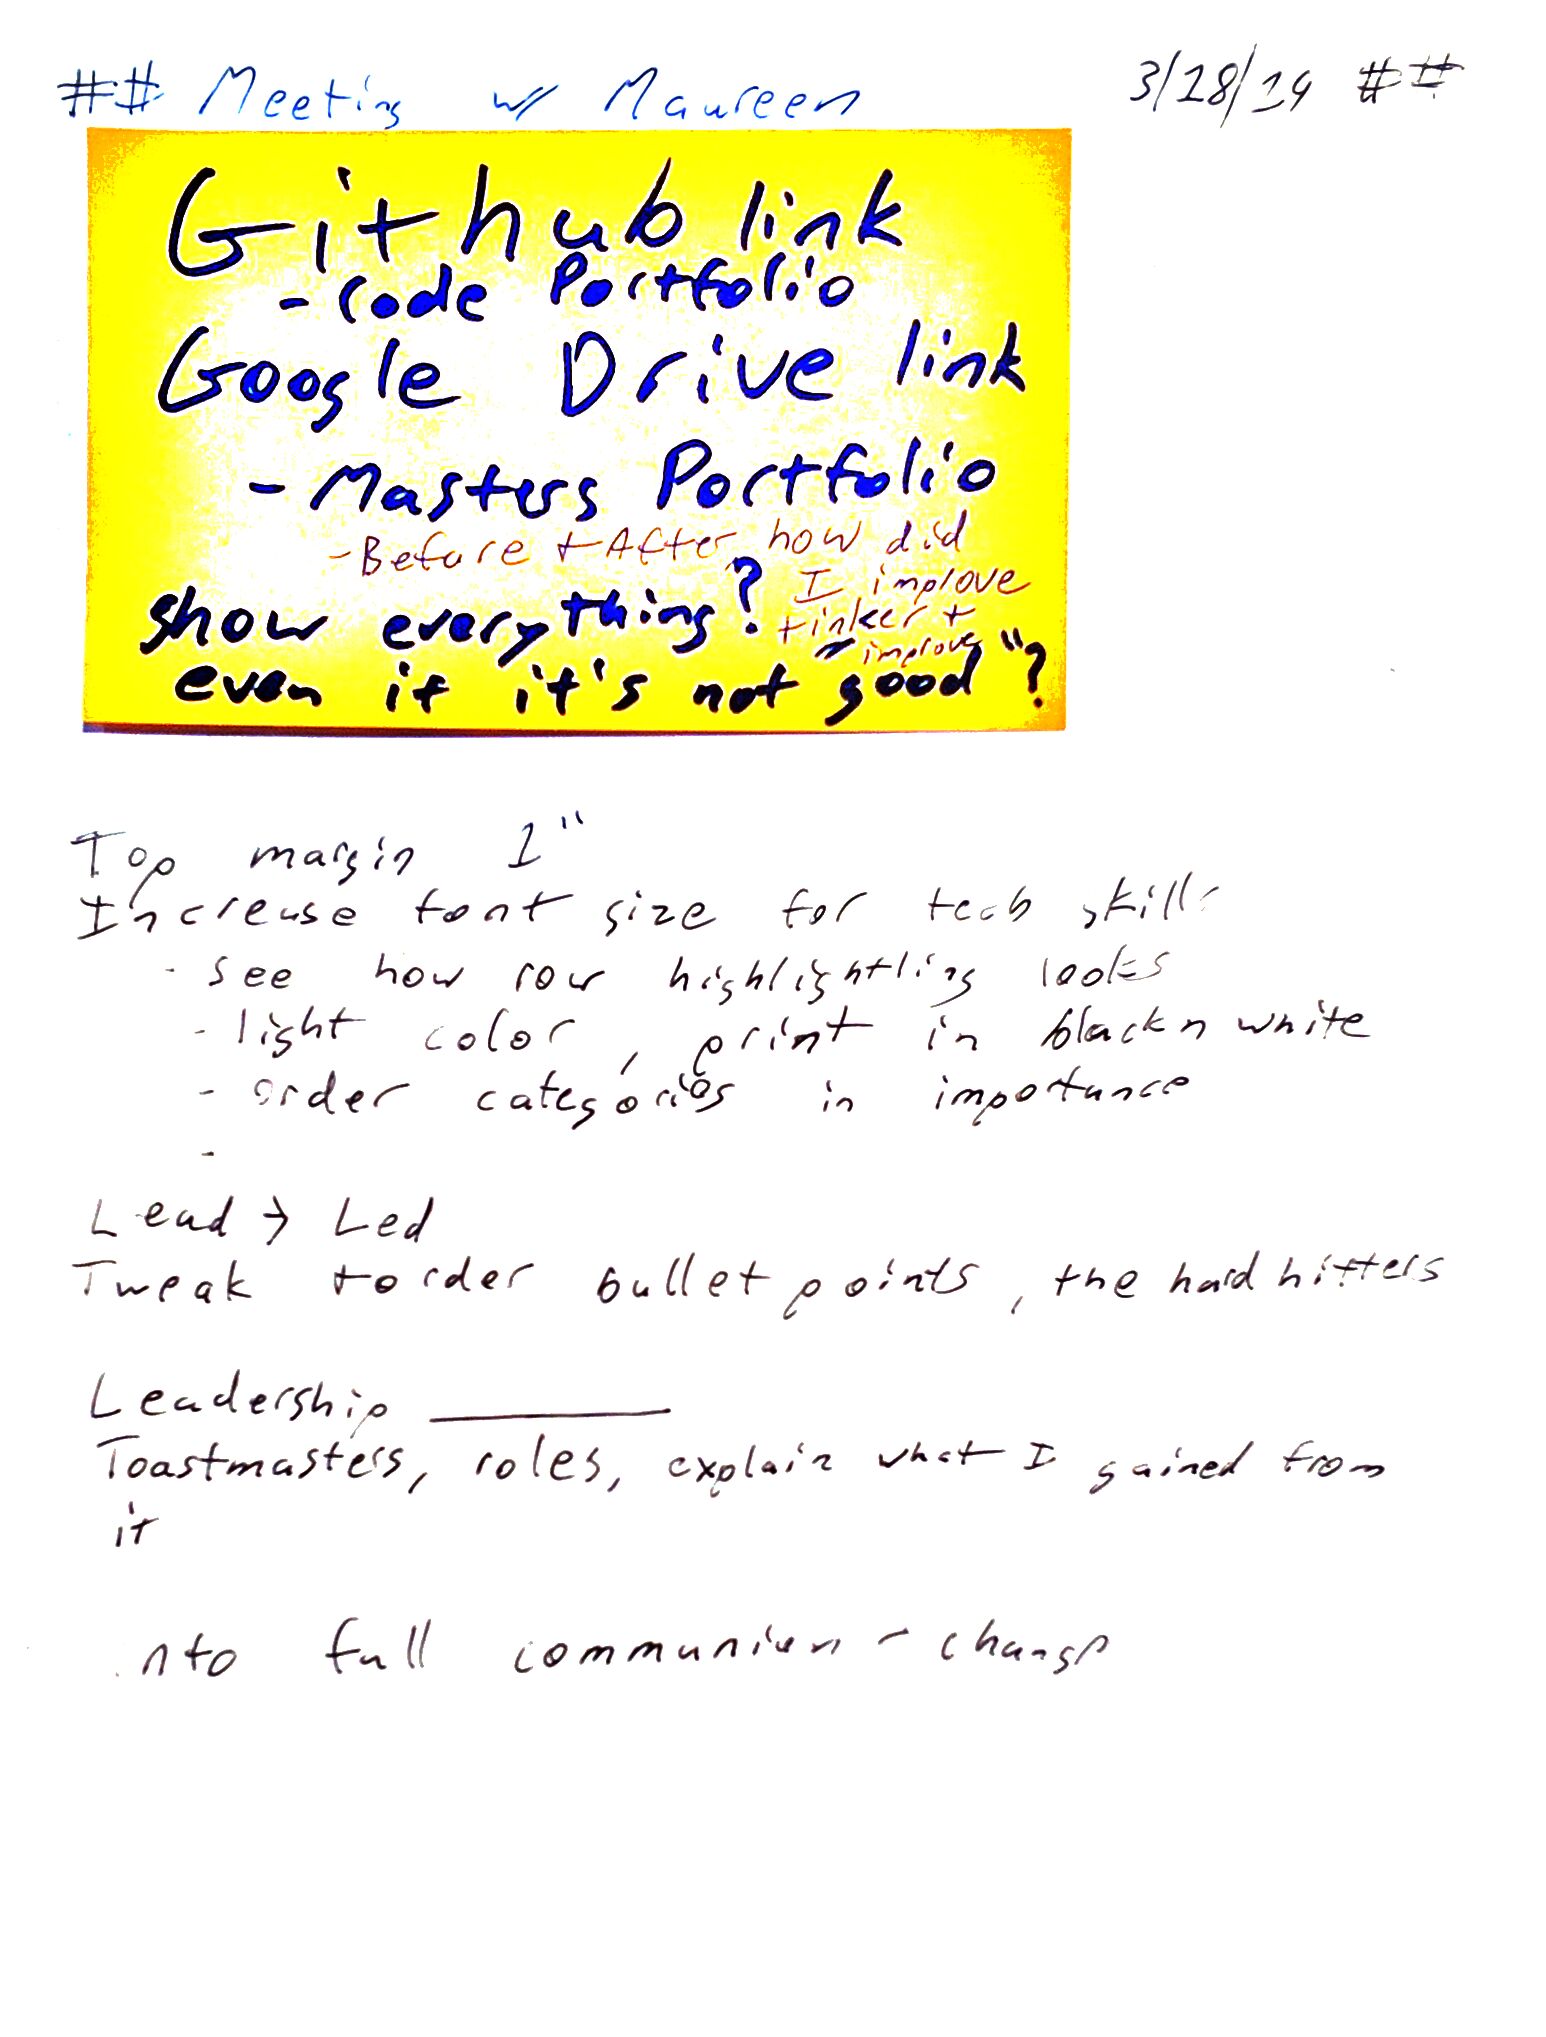 ## Meeting w/ Maureen 3/28/19 ##
Github link
- code Portfolio
Google Drive link
- Masters Portfolio
- Before + After, how did
I improve
tinker +
improve
show everything?
even if it's not "good"?
Top margin 1"
Increase font size for tech skills
- see how row highlightling looks
- light color, print in black n white
- order categories in importance
-
Lead → Led
Tweak + order bullet points, the hard hitters
Leadership
Toastmasters, roles, explain what I gained from
it
into full communion - change